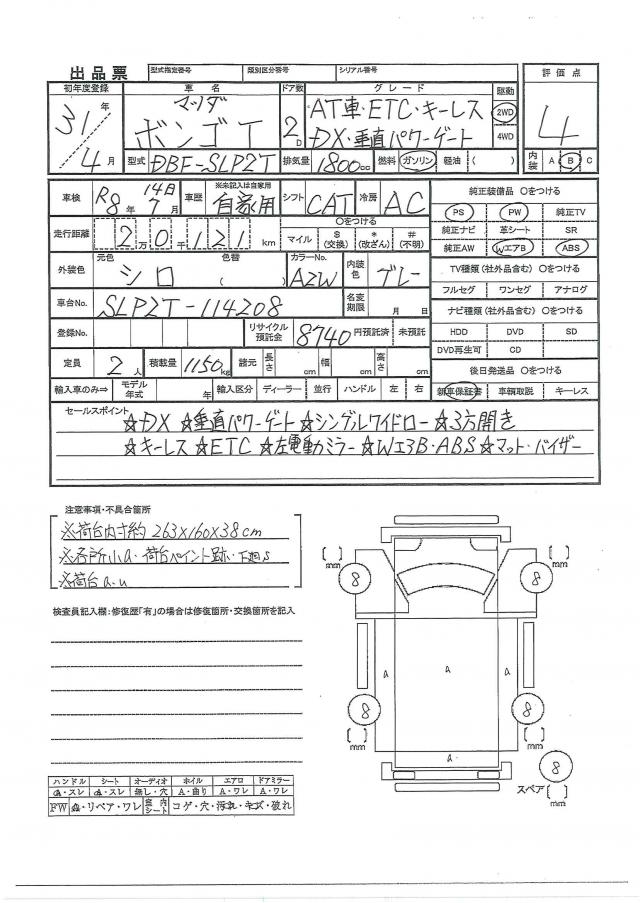 出品票 型式指定番号 類別区分番号 シリアル番号
初年度登録 車名 ドア数 グレード 駆動 評価点
31年 マツダ 2D AT車・ETC・キーレス 2WD 4
4月 ボンゴT DX・垂直パワーゲート 4WD
型式 DBF-SLP2T 排気量 1800cc 燃料 ガソリン 軽油 ( ) 内装 A B C
車検 R8年 14日 7月 車歴 ※未記入は自家用 自家用 シフト CAT 冷房 AC 純正装備品 ○をつける
PS PW 純正TV
走行距離 2万0千121km ○をつける マイル $(交換) *(改ざん) #(不明) 純正ナビ 革シート SR
純正AW WエアB ABS
外装色 元色 シロ 色替 ( ) カラーNo. A2W 内装色 グレー TV種類(社外品含む) ○をつける
フルセグ ワンセグ アナログ
車台No. SLP2T-114208 名変期限 月 日 ナビ種類(社外品含む) ○をつける
登録No. リサイクル預託金 8740 円預託済 未預託 HDD DVD SD
DVD再生可 CD
定員 2人 積載量 1150kg 諸元 長さ cm 幅 cm 高さ cm 後日発送品 ○をつける
輸入車のみ⇒ モデル年式 年 輸入区分 ディーラー 並行 ハンドル 左 右 新車保証書 車輌取説 キーレス
セールスポイント
☆DX ☆垂直パワーゲート ☆シングルワイドロー ☆3方開き
☆キーレス ☆ETC ☆左電動ミラー ☆WエアB・ABS ☆マット・バイザー
注意事項・不具合箇所
※荷台内寸約 263×160×38cm
※各所小a・荷台ペイント跡・下廻s
※荷台a.u
検査員記入欄:修復歴「有」の場合は修復箇所・交換箇所を記入
[ ] mm 8 8 [ ] mm
a a a
8 [ ] mm 8 [ ] mm
a
8
スペア [ ] mm
ハンドル シート オーディオ ホイル エアロ ドアミラー
・スレ ・スレ 無し・穴 A・曲り A・ワレ A・ワレ
FW ・リペア・ワレ 室内シート コゲ・穴・汚れ・キズ・破れ